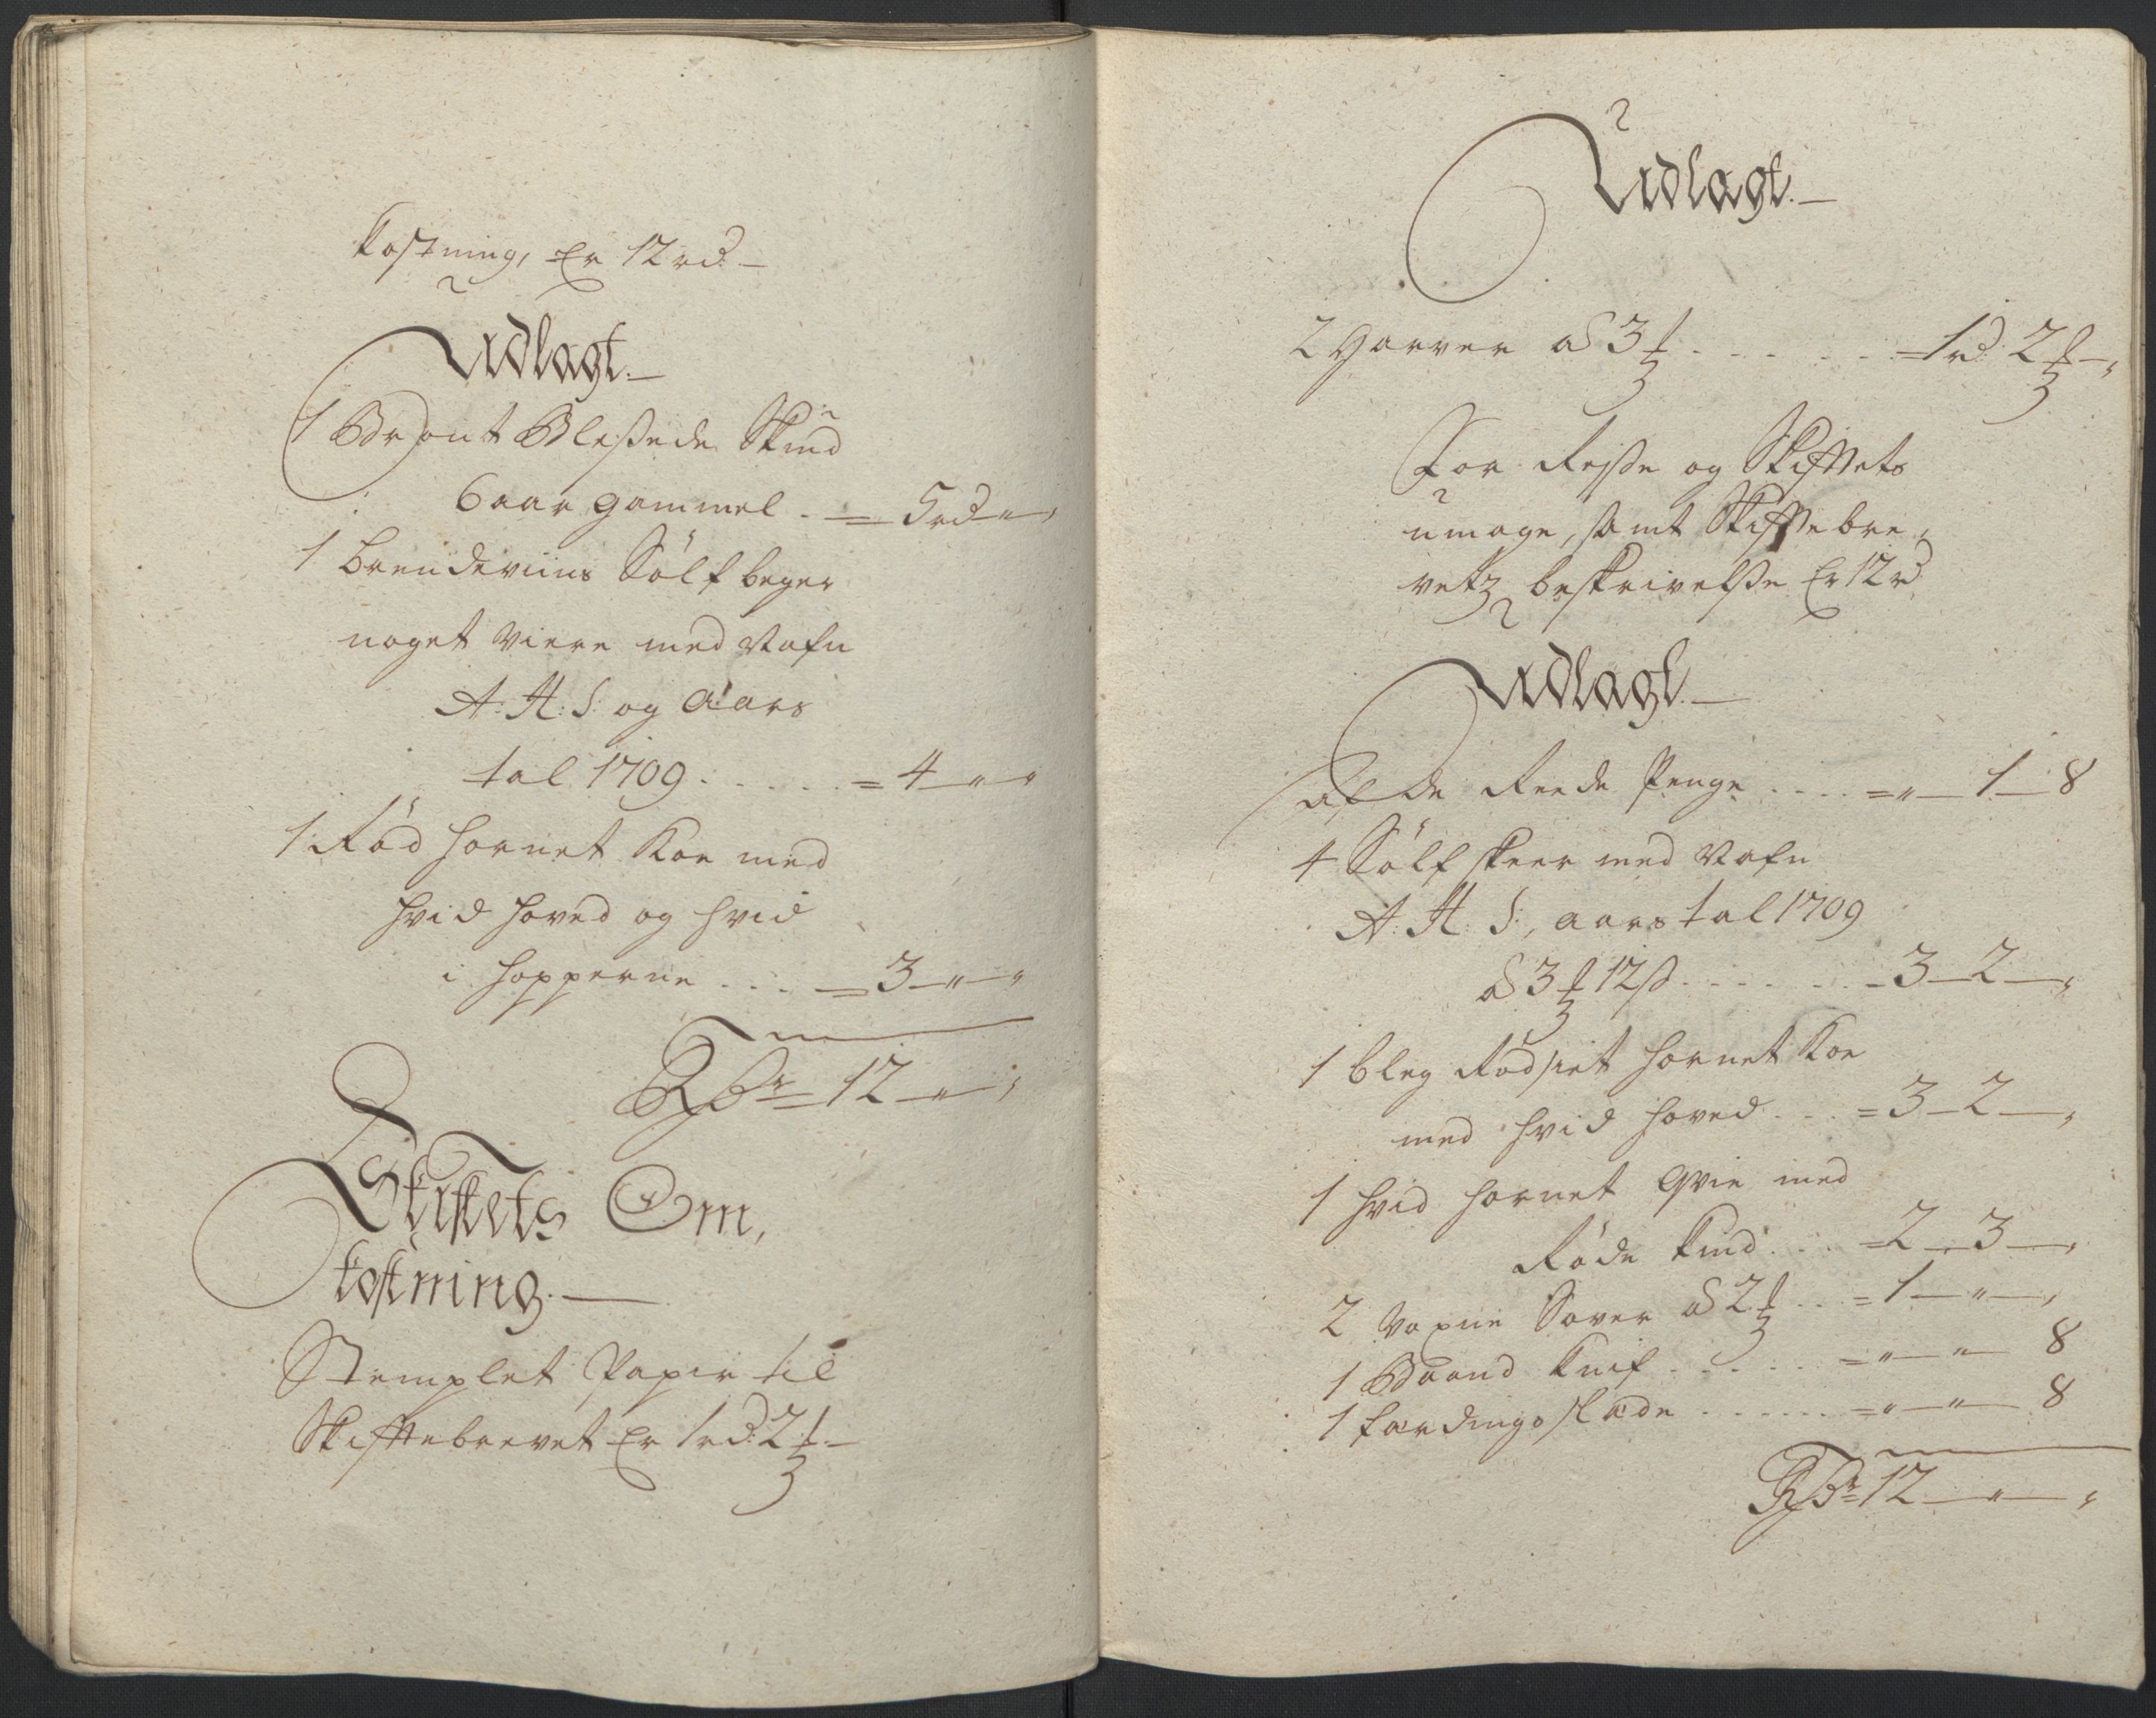 kostning, Er 12 rd: –
Udlagt. –
1 Bruunt Bleßede Skiud
6 aar gammel . = 5 rd – " – "
1 brendeviins Sölf beger
noget Viere med Nafn
A: H: S: og Aars
tal 1709 . . . . . = 4 – " – "
1 Röd hornet Koe med
hvid hoved og hvid
i hopperne . . . = 3 – " – "
Rdr = 12 – " – "
Skiftets Om,
kostning. –
Stemplet Papir til
Skiftebrevet Er 1 rd: 2 ʒ –
Udlagt. –
2 Harver a 3 ʒ . . . . . = 1 rd: 2 ʒ – "
For Reyße og Skiftets
umage, samt Skiftebre,
vetz beskrivelße Er 12 rd
Udlagt. –
af De Reede Penge . . . . = " – 1 – 8
4 Sölf skeer med Nafn
A: H: S:, aars tal 1709
a 3 ʒ 12 ß . . . . . . = 3 – 2 – "
1 bleg Rödsiet hornet Koe
med hvid hoved . . . = 3 – 2 – "
1 hvid hornet Qvie med
Röde kind . . . = 2 – 3 – "
2 Voxne Sover a 2 ʒ . . . = 1 – " – "
1 Baand kniv . . . . . = " – " – 8
1 færdings slæde . . . . . . = " – " – 8
Rdr = 12 – " – "